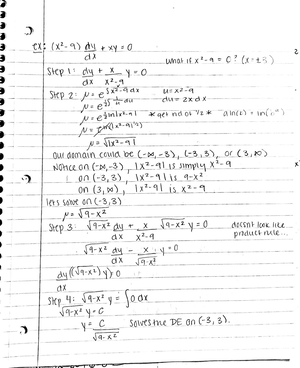 ex: (x²-9) dy/dx + xy = 0
what if x²-9 = 0? (x=±3)
Step 1: dy/dx + x/(x²-9) y = 0
Step 2: μ = e^∫ x/(x²-9) dx   u = x²-9
μ = e^½∫ 1/u du   du = 2x dx
μ = e^½ln|x²-9|   *get rid of ½*
μ = √|x²-9|
our domain could be (-∞,-3), (-3,3), or (3,∞)
Notice on (-∞,-3), |x²-9| is simply x²-9
on (-3,3) |x²-9| is 9-x²
on (3,∞) |x²-9| is x²-9
lets solve on (-3,3)
μ = √9-x²
Step 3: √9-x² dy/dx + x/(x²-9) √9-x² y = 0   doesnt look like
product rule...
√9-x² dy/dx - x/√9-x² y = 0
dy/dx((√9-x²) y) = 0
Step 4: √9-x² y = ∫0 dx
√9-x² y = C
y = C/√9-x²   solves the DE on (-3,3).